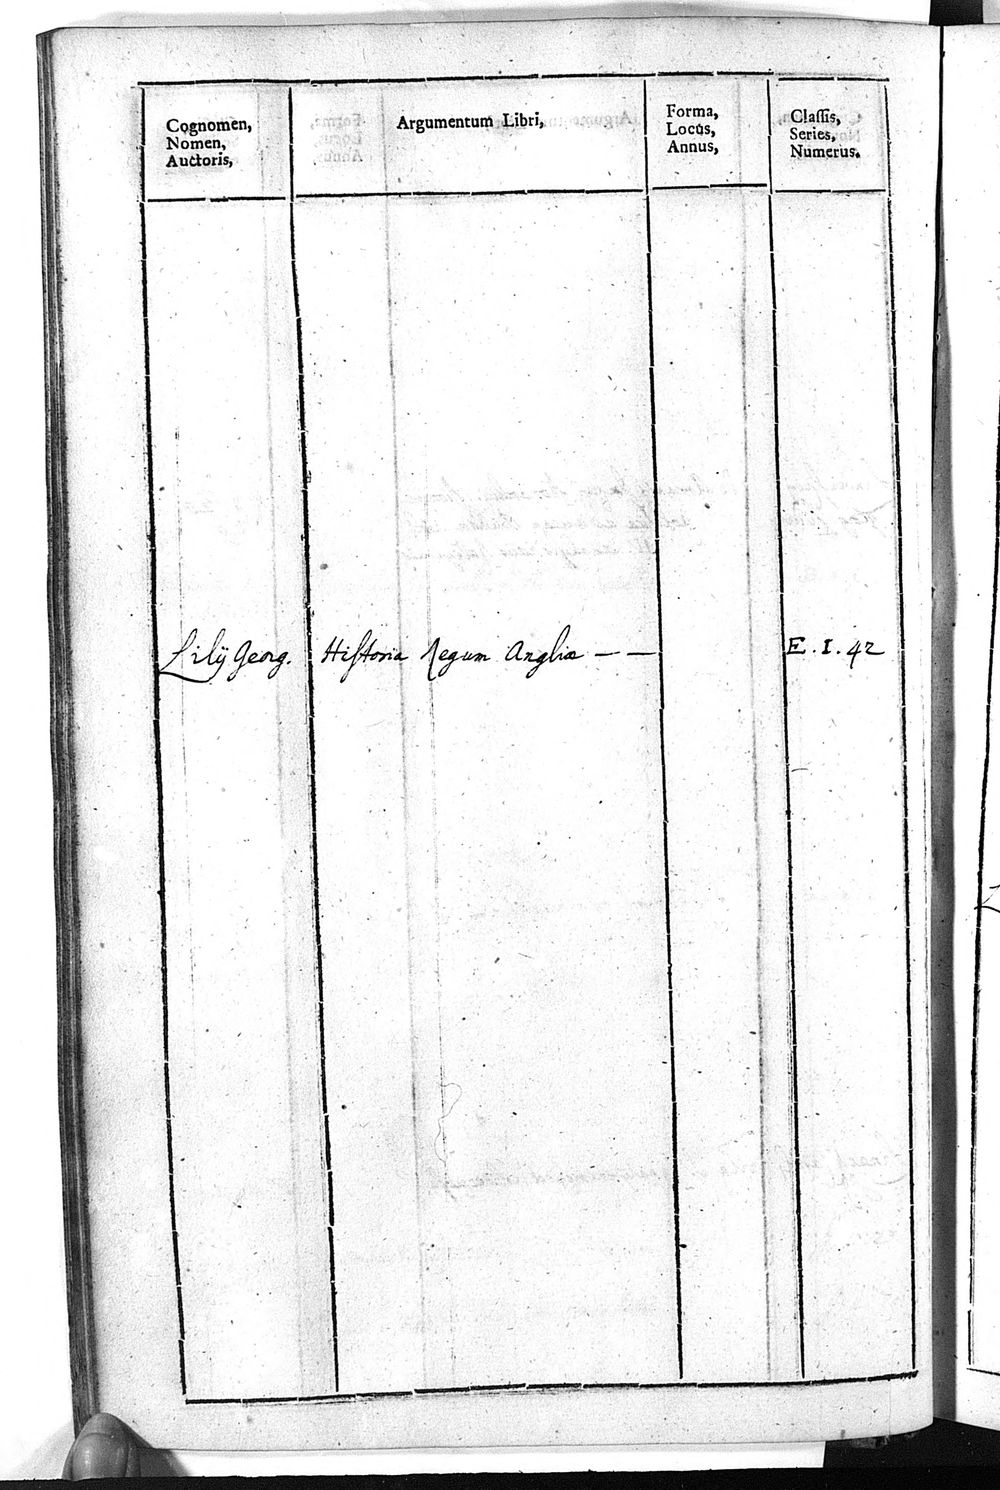 Cognomen,
Nomen,
Auctoris,
Argumentum Libri,
Forma,
Locus,
Annus,
Classis,
Series,
Numerus.
Lilÿ Georg. Historia Regum Angliæ — — E. I. 42